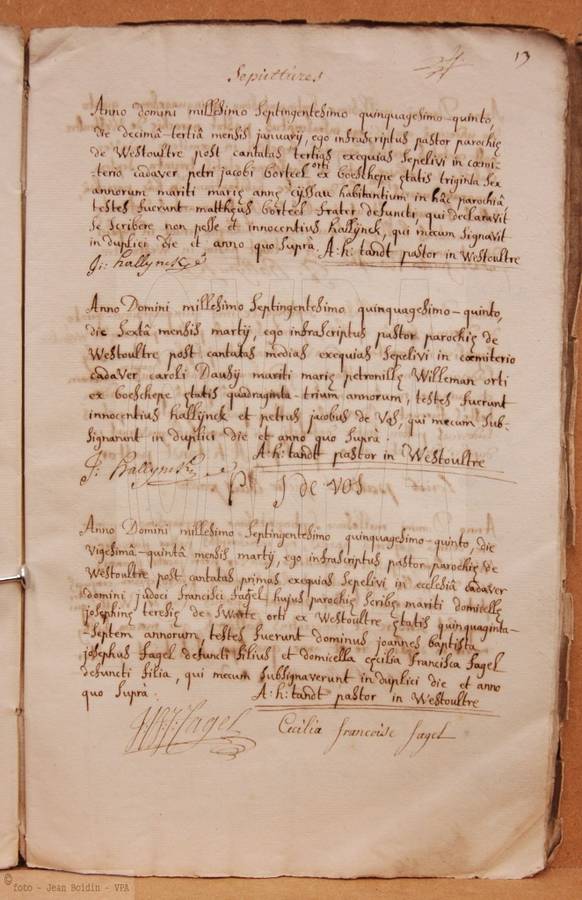 13
Sepultures
Anno domini millesimo septingentesimo quinquagesimo-quinto,
die decimâ-tertiâ mensis january, ego infrascriptus pastor parochię
de Westoultre post cantatas tertias exequias sepelivi in cœmi-
orti
-terio cadaver petri jacobi borteel ex boeschepe ętatis triginta sex
annorum mariti marię annę cyssau habitantium in hâc parochiâ,
testes fuerunt matthęus borteel frater defuncti, qui declaravit
se scribere non posse et innocentius hallÿnck, qui mecum signavit
in duplici die et anno quo suprà. A: h: tandt pastor in Westoultre
J: hallynck
Anno Domini millesimo septingentesimo quinquagesimo-quinto,
die sextâ mensis martÿ, ego infrascriptus pastor parochię de
Westoultre post cantatas medias exequias sepelivi in cœmiterio
cadaver caroli Dausÿ mariti marię petronillę Willeman orti
ex boeschepe ętatis quadraginta-trium annorum, testes fuerunt
innocentius hallijnck et petrus jacobus de Vos, qui mecum sub-
signarunt in duplici die et anno quo suprà.
A: h: tandt pastor in Westoultre
J: hallynck
P J de vos
Anno Domini millesimo septingentesimo quinquagesimo-quinto, die
vigesimâ-quintâ mensis martÿ, ego infrascriptus pastor parochię de
Westoultre post cantatas primas exequias sepelivi in ecclesiâ cadaver
domini judoci francisci fagel hujus parochię scribę mariti domicellę
josephinę teresię de Swarte orti ex Westoultre ętatis quinquaginta-
-septem annorum, testes fuerunt dominus joannes baptista
josephus fagel defuncti filius et domicella cęcilia francisca fagel
defuncti filia, qui mecum subsignaverunt in duplici die et anno
quo suprà.
A: h: tandt pastor in Westoultre
fagel Cecilia francoise fagel
© foto - Jean Boidin - VPA